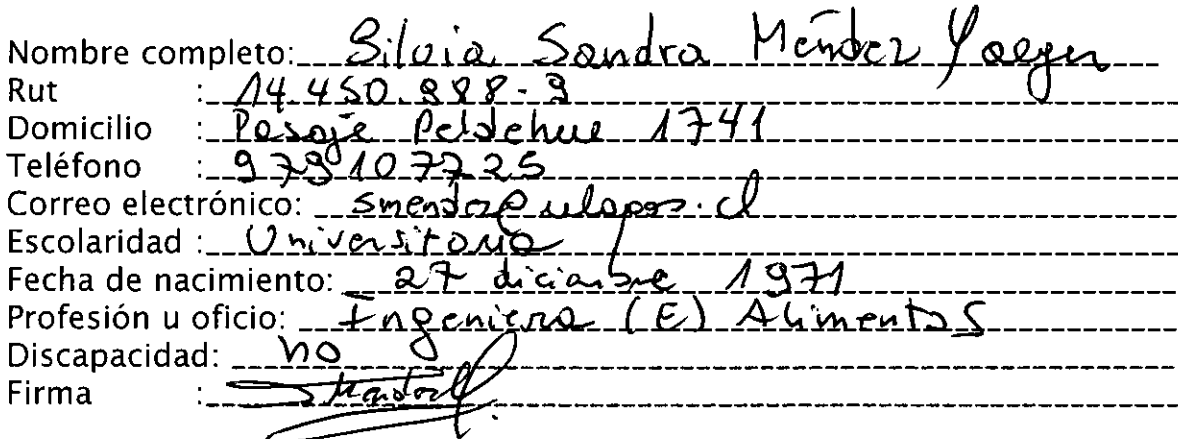 Nombre completo: Silvia Sandra Méndez Yaeger
Rut : 14.450.988-9
Domicilio : Pasaje Peldehue 1741
Teléfono : 9791077225
Correo electrónico: smendez@ulagos.cl
Escolaridad : Universitaria
Fecha de nacimiento: 27 diciembre 1971
Profesión u oficio: Ingeniera (E) Alimentos
Discapacidad: no
Firma :